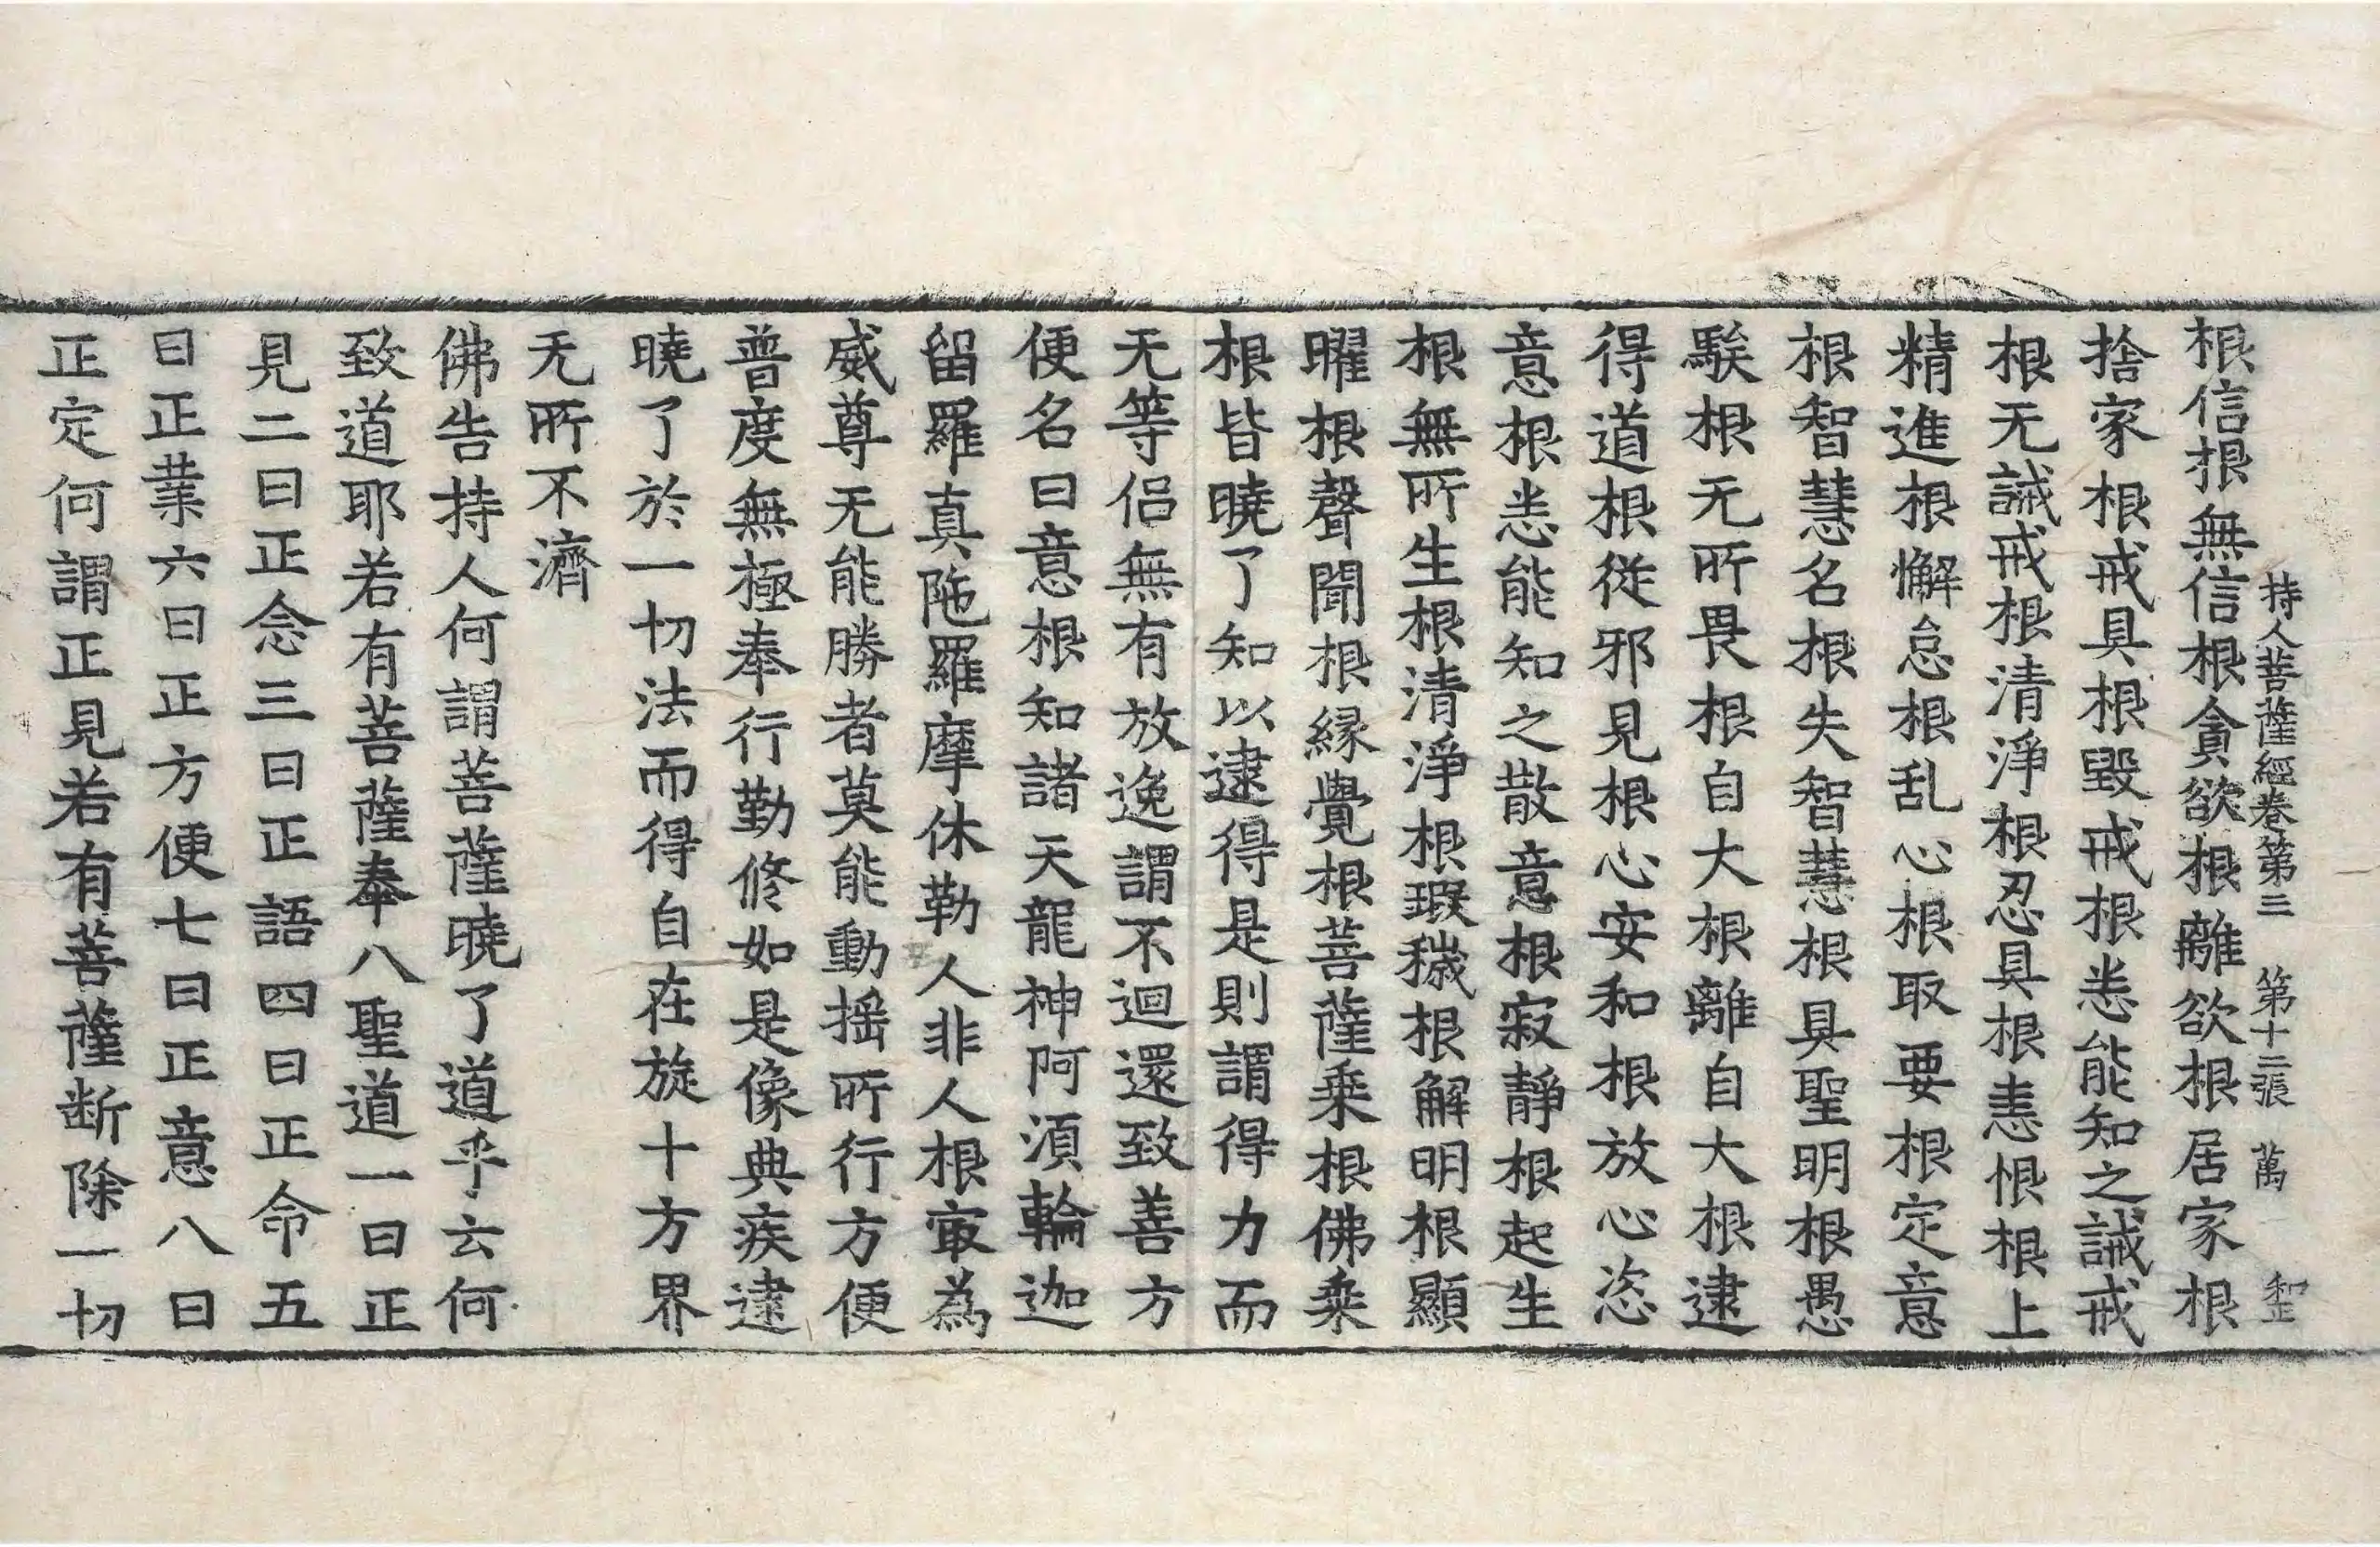 持人菩薩經卷第三　第十二張　萬
根信根無信根貪欲根離欲根居家根
捨家根戒具根毀戒根悉能知之誡戒
根无誡戒根清淨根忍具根恚恨根上
精進根懈怠根乱心根取要根定意
根智慧名根失智慧根具聖明根愚
騃根无所畏根自大根離自大根逮
得道根從邪見根心安和根放心恣
意根悉能知之散意根寂靜根起生
根無所生根清淨根瑕穢根解明根顯
曜根聲聞根縁覺根菩薩乗根佛乗
根皆曉了知以逮得是則謂得力而
无等侣無有放逸謂不迴還致善方
便名曰意根知諸天龍神阿須輪迦
留羅真陁羅摩休勒人非人根㝡為
威尊无能勝者莫能動摇所行方便
普度無極奉行勤修如是像典疾逮
曉了於一切法而得自在旋十方界
无所不濟
佛告持人何謂菩薩曉了道乎云何
致道耶若有菩薩奉八聖道一曰正
見二曰正念三曰正語四曰正命五
曰正業六曰正方便七曰正意八曰
正定何謂正見若有菩薩断除一切